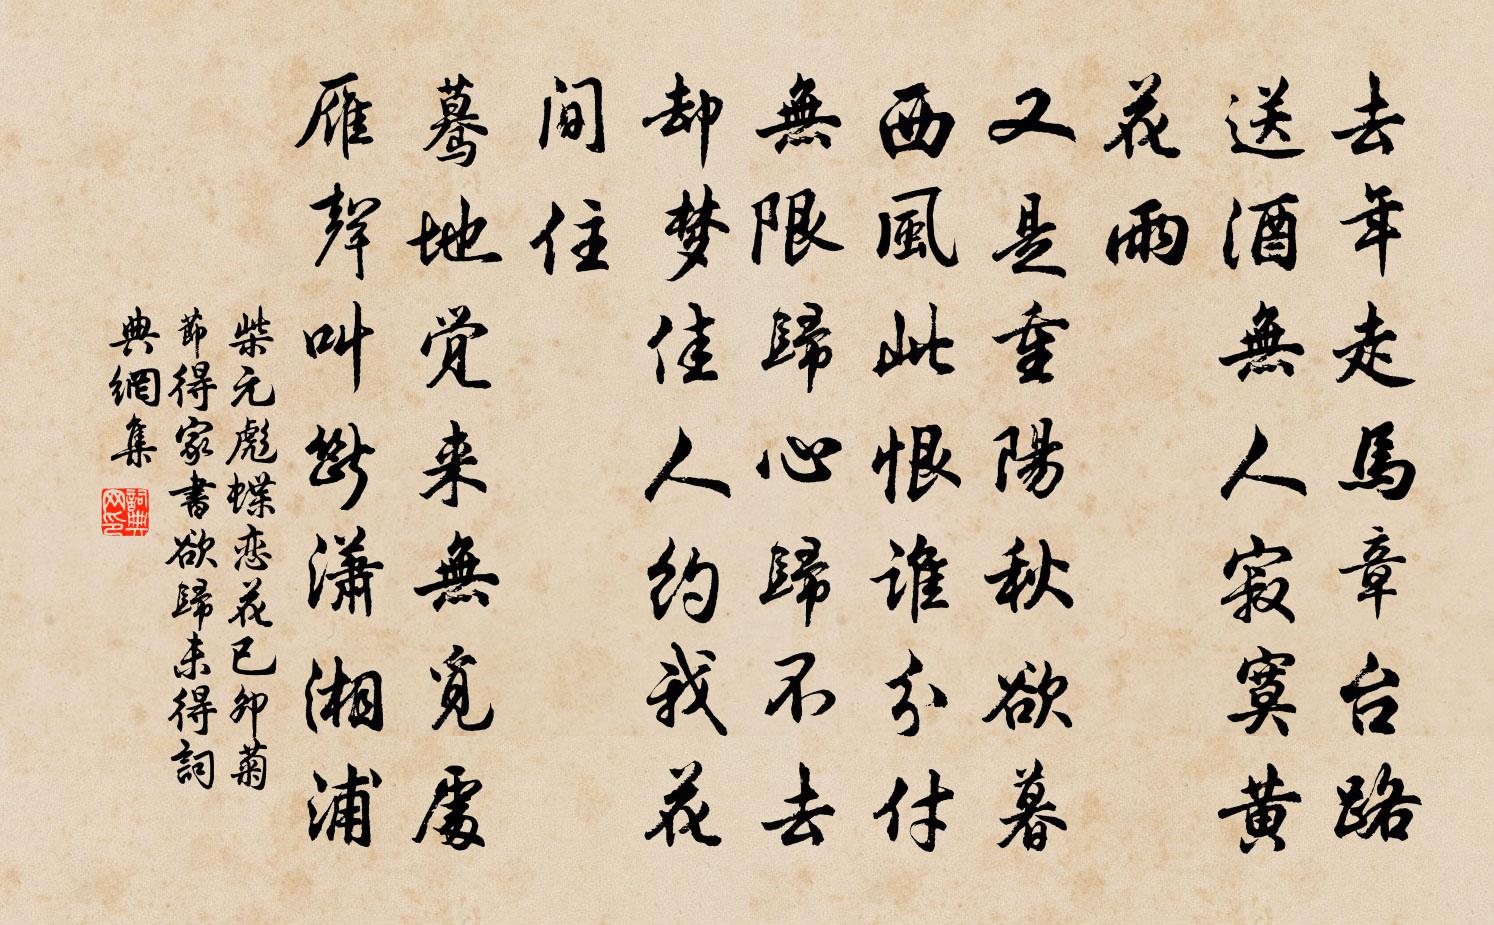 去年走馬章台路
送酒無人寂寞黄
花雨
又是重陽秋欲暮
西風此恨誰分付
無限歸心歸不去
却梦佳人约我花
間住
蓦地觉来無覓處
雁聲叫断潇湘浦
柴元彪蝶恋花己卯菊
節得家書欲歸未得詞
典網集
詞典网印